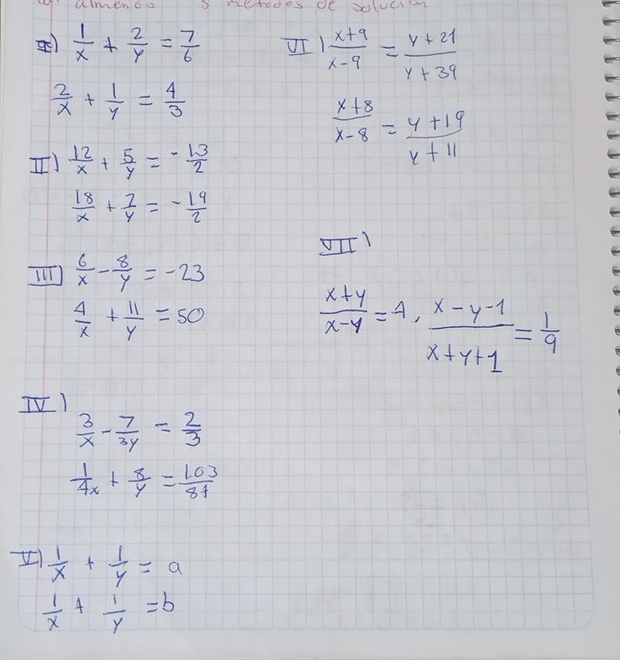 al menos 3 métodos de solución
I) 1/x + 2/y = 7/6
2/x + 1/y = 4/3
II) 12/x + 5/y = -13/2
18/x + 7/y = -19/2
III) 6/x - 8/y = -23
4/x + 11/y = 50
IV)
3/x - 7/3y = 2/3
1/4x + 8/y = 103/84
V) 1/x + 1/y = a
1/x + 1/y = b
VI) x+9/x-9 = y+21/y+39
x+8/x-8 = y+19/y+11
VII)
x+y/x-y = 4, x-y-1/x+y+1 = 1/9